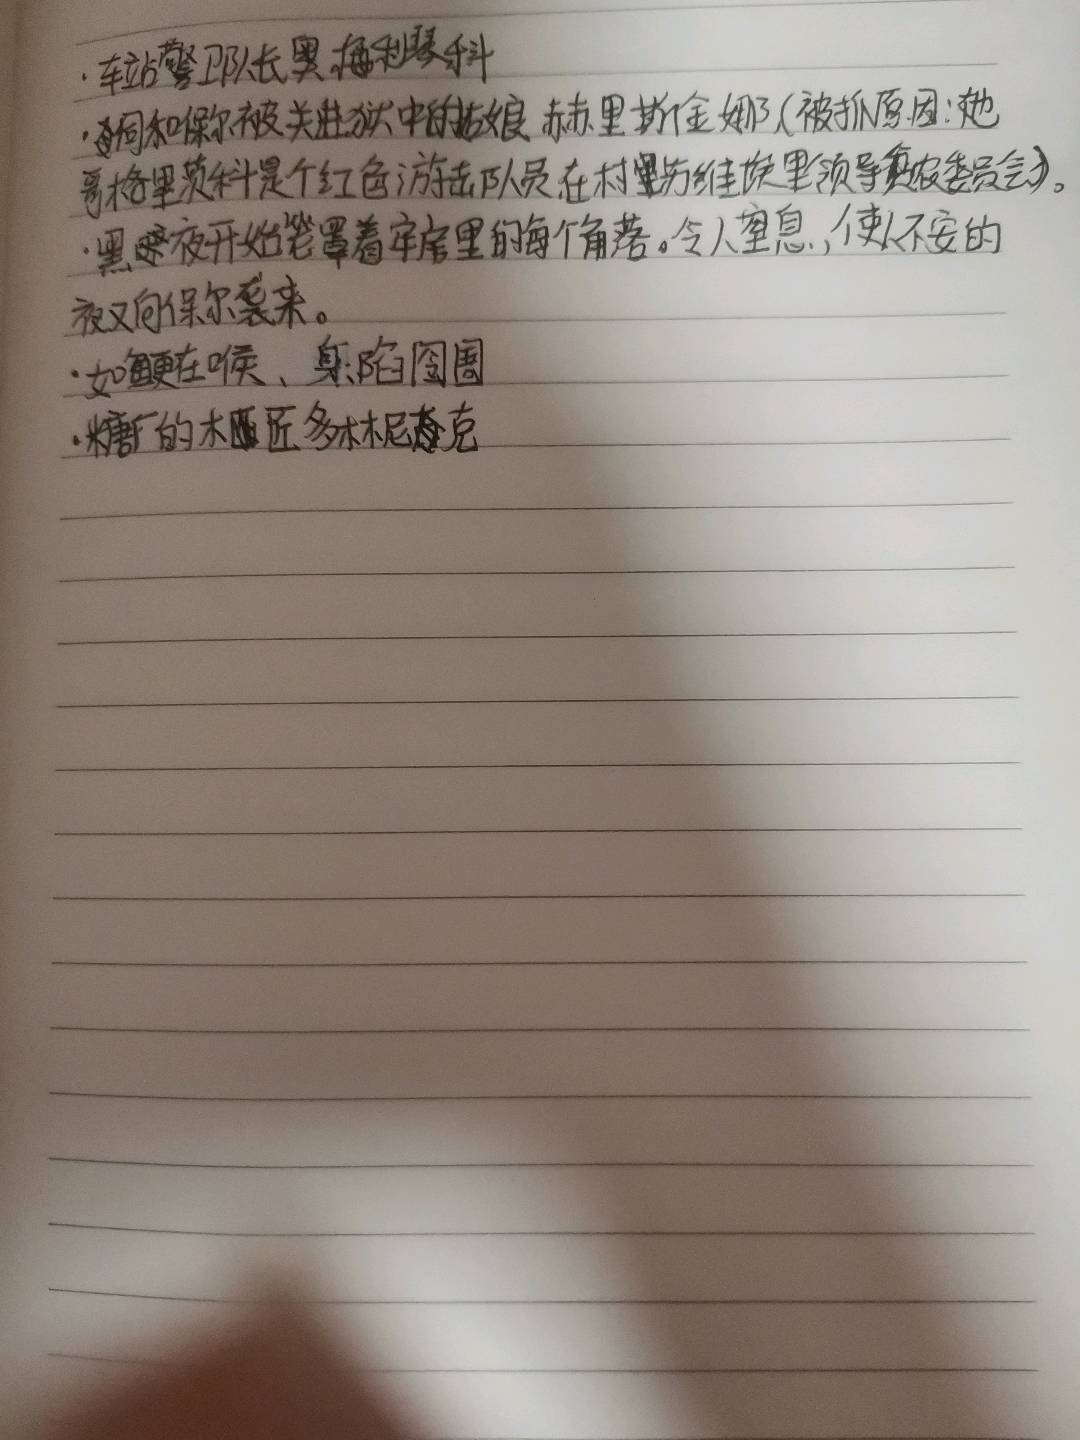 ·车站警卫队长奥梅利琴科
·同和保尔被关进狱中的姑娘 赫里斯金娜(被抓原因:她
哥格里茨科是个红色游击队员在村里苏维埃里领导贫农委员会)。
·黑夜开始笼罩着牢房里的每个角落。令人窒息,使人不安的
夜又向保尔袭来。
·如鲠在喉、身陷囹圄
·糖厂的木匠多林尼克